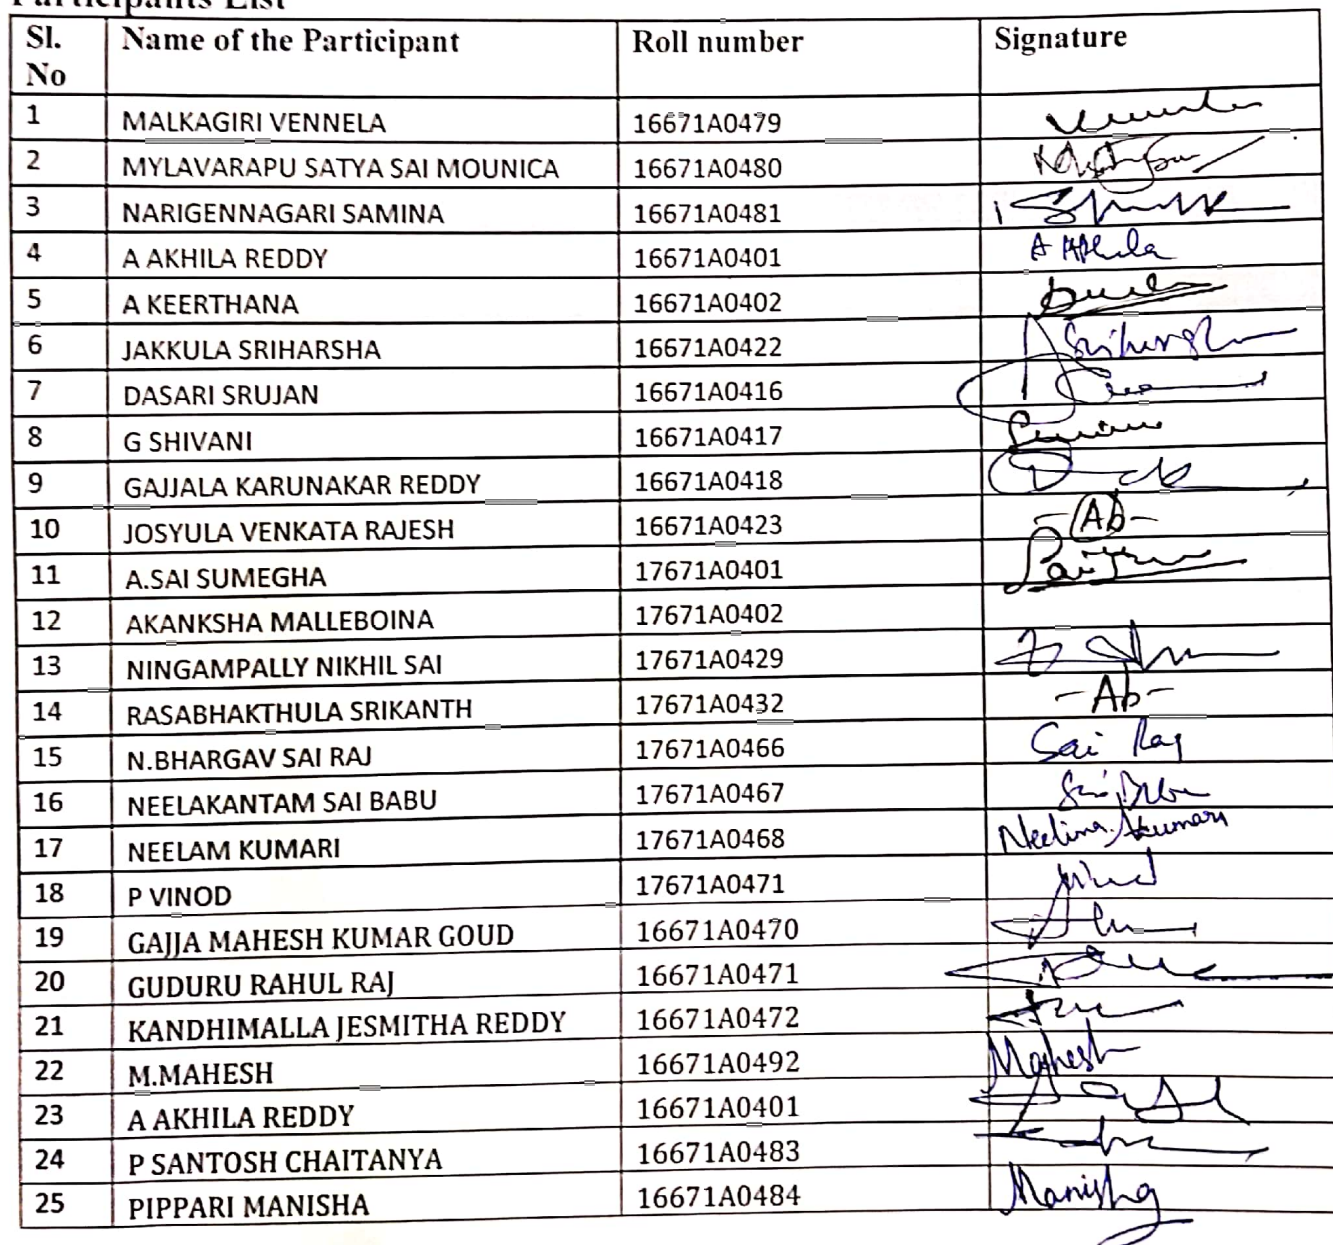 Participants List
Sl. No Name of the Participant Roll number Signature
1 MALKAGIRI VENNELA 16671A0479
2 MYLAVARAPU SATYA SAI MOUNICA 16671A0480
3 NARIGENNAGARI SAMINA 16671A0481
4 A AKHILA REDDY 16671A0401 A Akhila
5 A KEERTHANA 16671A0402
6 JAKKULA SRIHARSHA 16671A0422
7 DASARI SRUJAN 16671A0416
8 G SHIVANI 16671A0417
9 GAJJALA KARUNAKAR REDDY 16671A0418
10 JOSYULA VENKATA RAJESH 16671A0423 -Ab-
11 A.SAI SUMEGHA 17671A0401
12 AKANKSHA MALLEBOINA 17671A0402
13 NINGAMPALLY NIKHIL SAI 17671A0429
14 RASABHAKTHULA SRIKANTH 17671A0432 -Ab-
15 N.BHARGAV SAI RAJ 17671A0466 Sai Raj
16 NEELAKANTAM SAI BABU 17671A0467
17 NEELAM KUMARI 17671A0468 kumari
18 P VINOD 17671A0471
19 GAJJA MAHESH KUMAR GOUD 16671A0470
20 GUDURU RAHUL RAJ 16671A0471
21 KANDHIMALLA JESMITHA REDDY 16671A0472
22 M.MAHESH 16671A0492 Mahesh
23 A AKHILA REDDY 16671A0401
24 P SANTOSH CHAITANYA 16671A0483
25 PIPPARI MANISHA 16671A0484 Manisha